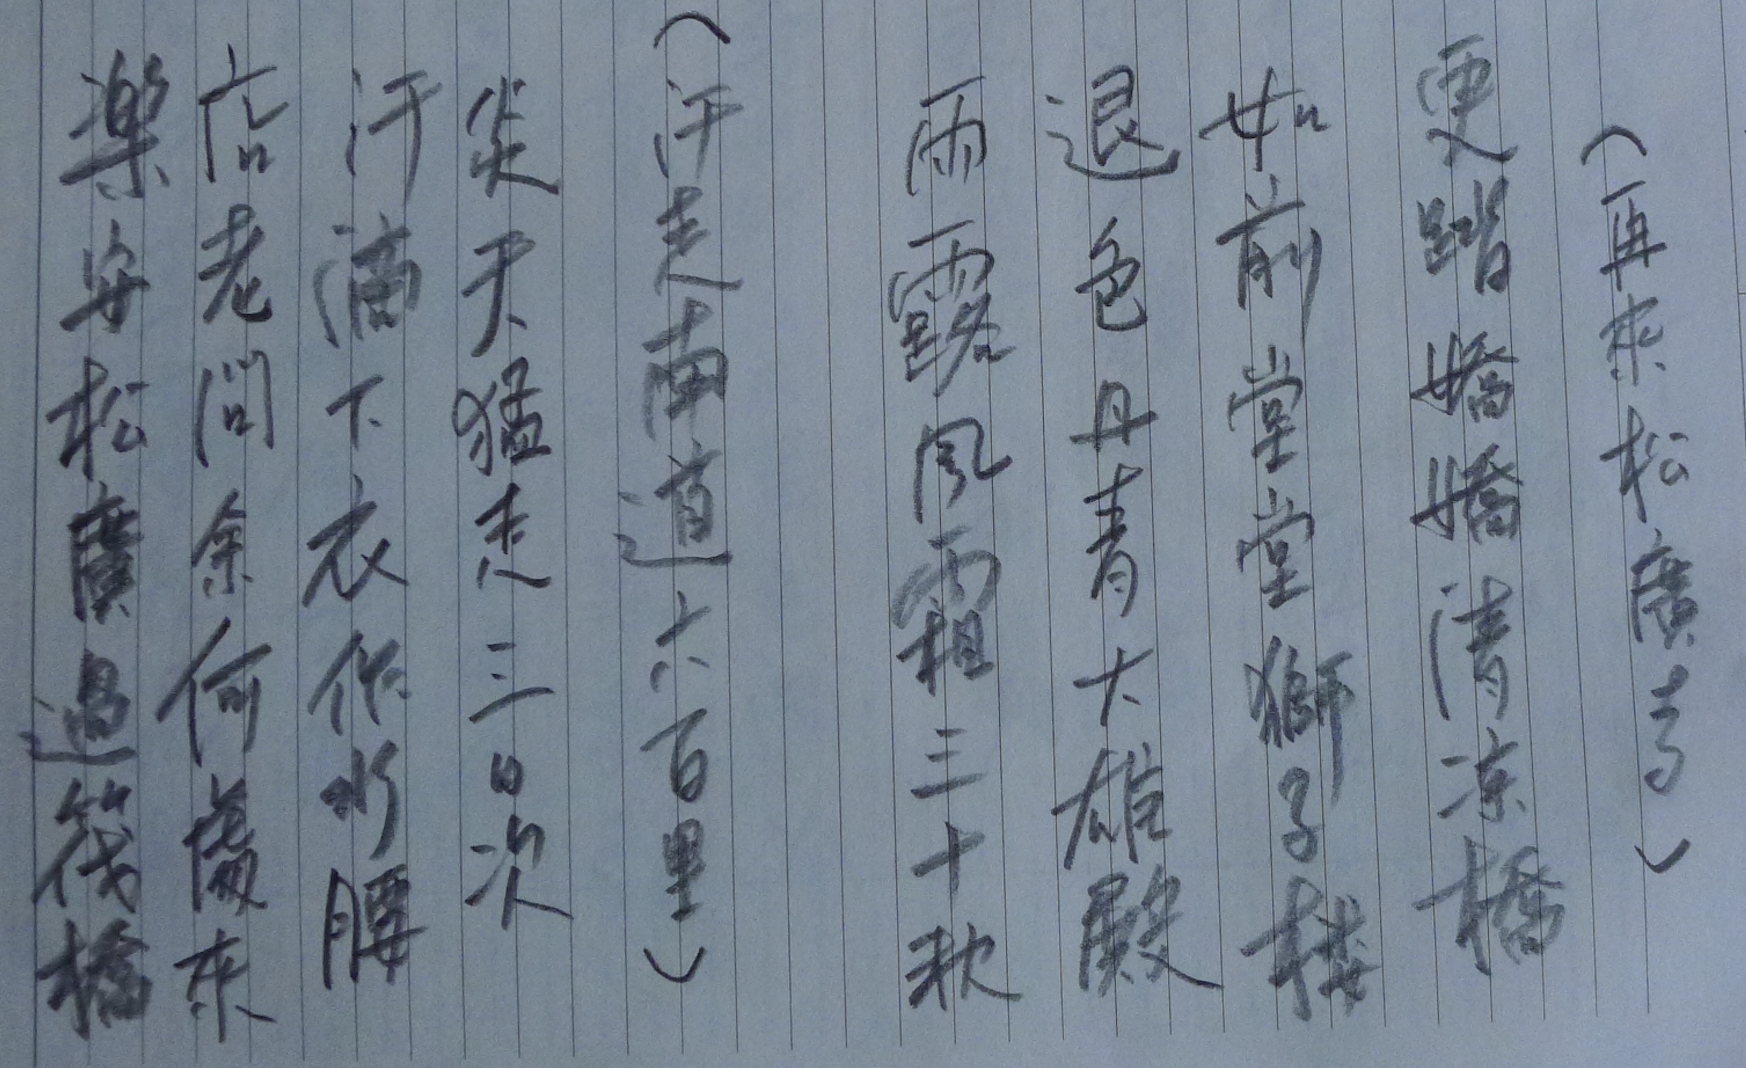 (再來松廣寺)
更踏嬌嬌清凉橋
如前堂堂獅子楼
退色丹青大雄殿
雨露風霜三十秋
(汗走南道六百里)
炎天猛走三日次
汗滴下衣作水腰
店老問余何處来
楽安松廣過筏橋